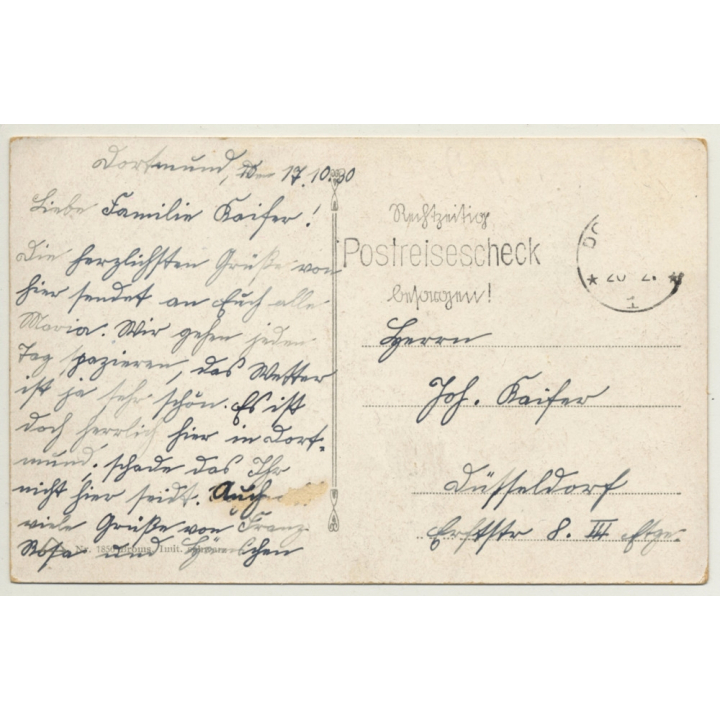 Dortmund, 17.10.30
Liebe Familie Kaiser!
Die herzlichsten Grüße von
hier sendet an Euch alle
Maria. Wir gehen jeden
Tag spazieren, das Wetter
ist ja sehr schön. Es ist
doch herrlich hier in Dort-
mund, schade das Ihr
nicht hier seidt. Auch
viele Grüße von Franz
Rosa und
Rechtzeitig
Postreisescheck
besorgen!
DO
1
Herrn
Joh. Kaiser
Düsseldorf
Erftstr 8. III Etge.